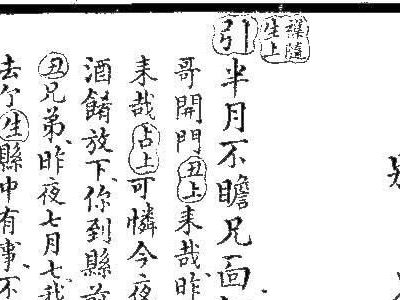 雜隨生上
引半月不瞻兄面
哥開門丑上来哉昨
来哉占上可憐今夜
酒餚放下你到縣前
丑兄弟昨夜七月七我
去个生縣中有事不